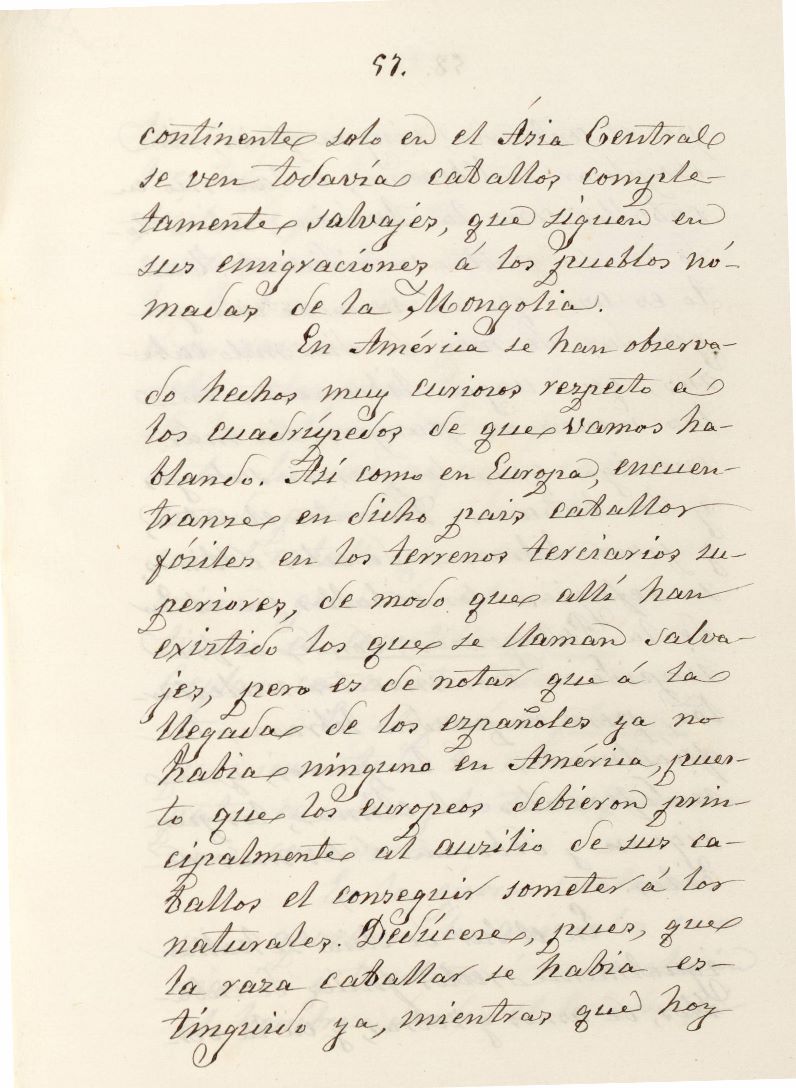 57.
continente solo en el Ásia Central
se ven todavía caballos comple-
tamente salvajes, que siguen en
sus emigraciones á los pueblos nó-
madas de la Mongolia.
En América se han observa-
do hechos muy curiosos respecto á
los cuadrúpedos de que vamos ha-
blando. Así como en Europa, encuen-
transe en dicho pais caballos
fósiles en los terrenos terciarios su-
periores, de modo que allí han
existido los que se llaman salva-
jes, pero es de notar que á la
llegada de los españoles ya no
habia ninguno en América, pues-
to que los europeos debieron prin-
cipalmente al auxilio de sus ca-
ballos el conseguir someter á los
naturales. Dedúcese, pues, que
la raza caballar se habia es-
tinguido ya, mientras que hoy